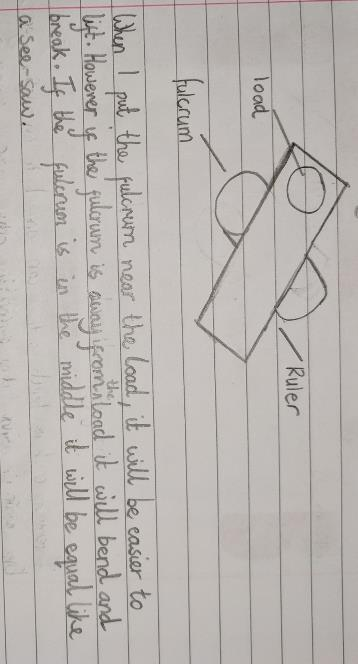 load
fulcrum
Ruler
When I put the fulcrum near the load, it will be easier to
lift. However if the fulcrum is away from the load it will bend and
break. If the fulcrum is in the middle it will be equal like
a see-saw.